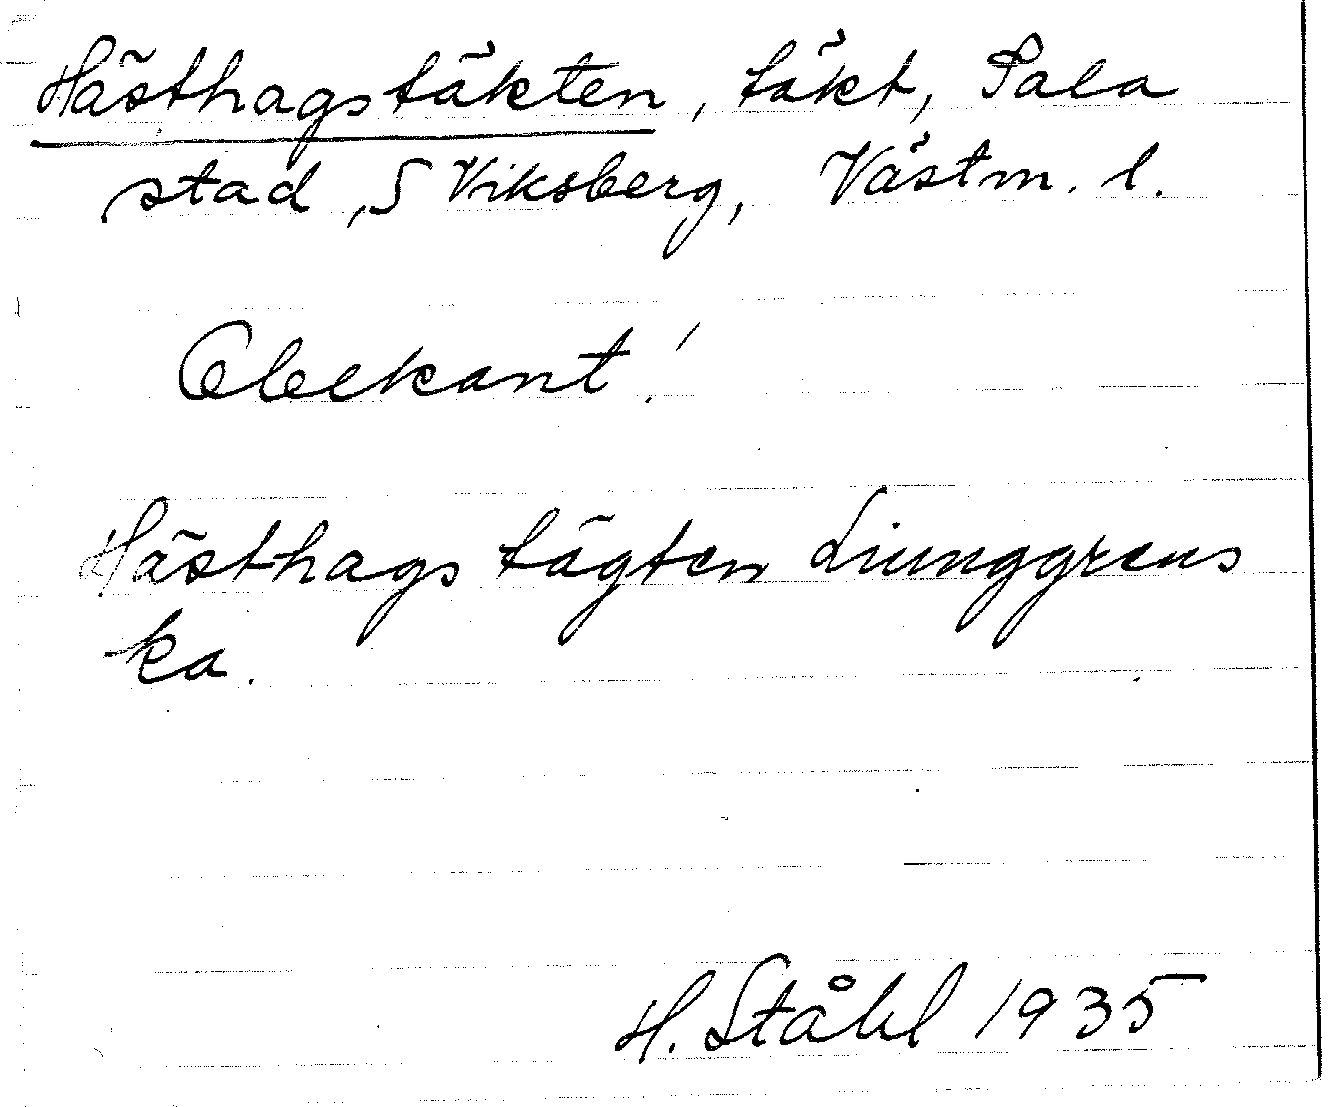 Hästhagstäkten, täkt, Sala
stad, S Viksberg, Västm. l.
Obekant!
Hästhags tägten Liunggrens
ka.
H. Ståhl 1935